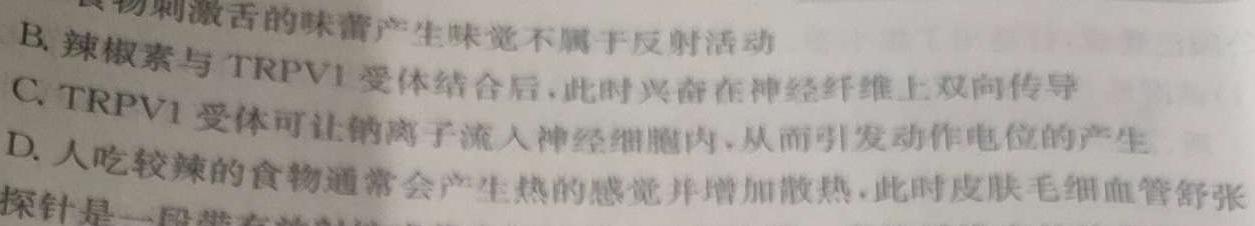 食物刺激舌的味蕾产生味觉不属于反射活动
B. 辣椒素与 TRPV1 受体结合后,此时兴奋在神经纤维上双向传导
C. TRPV1 受体可让钠离子流入神经细胞内,从而引发动作电位的产生
D. 人吃较辣的食物通常会产生热的感觉并增加散热,此时皮肤毛细血管舒张
探针是一段带有放射